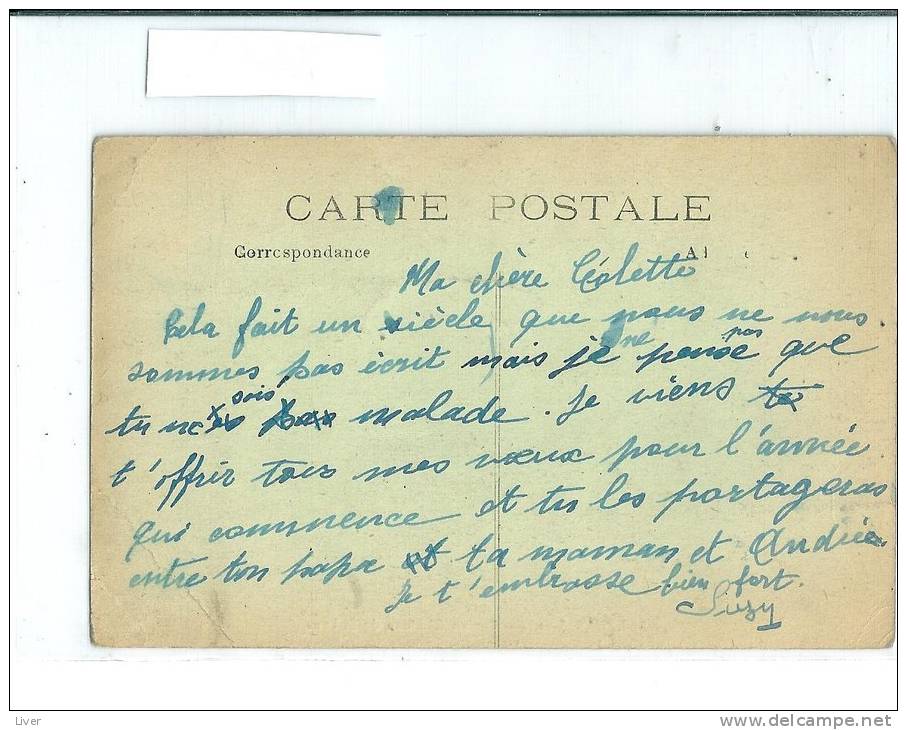 CARTE POSTALE
Correspondance
Ma chère Colette
Cela fait un siècle que nous ne nous
sommes pas écrit mais je ne pense pas que
tu sois malade. Je viens
t'offrir tous mes vœux pour l'année
qui commence et tu les partageras
entre ton papa ta maman et Andrée
Je t'embrasse bien fort.
Suzy
Liver
www.delcampe.net